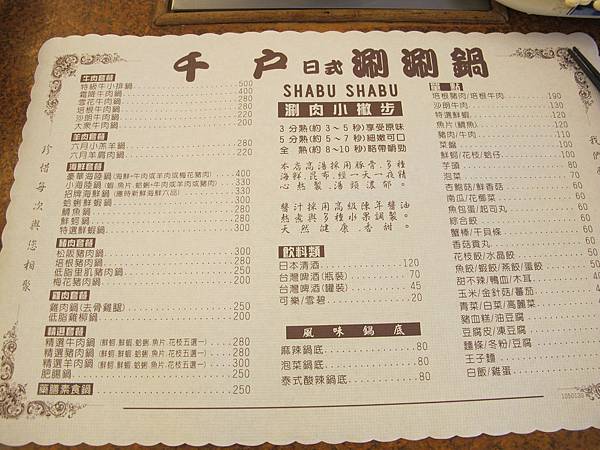 千戶日式涮涮鍋
SHABU SHABU
珍惜每次與您相聚
牛肉套餐
特級牛小排鍋 500
霜降牛肉鍋 400
雪花牛肉鍋 280
培根牛肉鍋 220
沙朗牛肉鍋 220
大家牛肉鍋 200
羊肉套餐
六月小羔羊鍋 280
六月羊肩肉鍋 220
海鮮套餐
豪華海陸鍋(海鮮+牛肉或羊肉或梅花豬肉) 400
小海陸鍋(蝦.魚片.蛤蜊+牛肉或羊肉或豬肉) 330
招牌海鮮鍋(應時新鮮海鮮六品) 330
蛤蜊鮮蝦鍋 280
鯛魚鍋 280
鮮蚵鍋 280
特選鮮蝦鍋 280
豬肉套餐
松阪豬肉鍋 300
培根豬肉鍋 220
低脂里肌豬肉鍋 250
梅花豬肉鍋 200
雞肉套餐
雞肉鍋(去骨雞腿) 250
低脂雞柳鍋 250
精選套餐
精選牛肉鍋(鮮蚵.鮮蝦.蛤蜊.魚片.花枝五選一) 280
精選豬肉鍋(鮮蚵.鮮蝦.蛤蜊.魚片.花枝五選一) 280
精選羊肉鍋(鮮蚵.鮮蝦.蛤蜊.魚片.花枝五選一) 300
肥腸鍋 250
藥膳素食鍋 250
涮肉小撇步
3 分熟(約 3~5 秒)享受原味
5 分熟(約 5~7 秒)細嫩可口
全 熟(約 8~10 秒)略帶韌勁
本店高湯採用豚骨.多種
海鮮.昆布.經一天一夜精
心熬製.湯頭濃郁。
醬汁採用高級陳年醬油
熬煮與多種水果調製。
天然 健康 香甜。
飲料類
日本清酒 120
台灣啤酒(瓶裝) 70
台灣啤酒(罐裝) 45
可樂/雪碧 20
風味鍋底
麻辣鍋底 80
泡菜鍋底 80
泰式酸辣鍋底 80
單點
培根豬肉/培根牛肉 190
沙朗牛肉 130
特選鮮蝦 100
魚片(鯛魚) 120
豬肉/牛肉 110
菜盤 90
鮮蚵/花枝/蛤仔 100
芋頭
泡菜
杏鮑菇/鮮香菇
南瓜/花椰菜
魚包蛋/起司丸
綜合餃
蟹棒/干貝條
香菇貢丸
花枝餃/水晶餃
魚餃/蝦餃/燕餃/蛋餃
甜不辣/鴨血/木耳
玉米/金針菇/蕃茄
青菜/白菜/高麗菜
豬血糕/油豆腐
豆腐皮/凍豆腐
麵條/冬粉/豆腐
王子麵
白飯/雞蛋
1050530